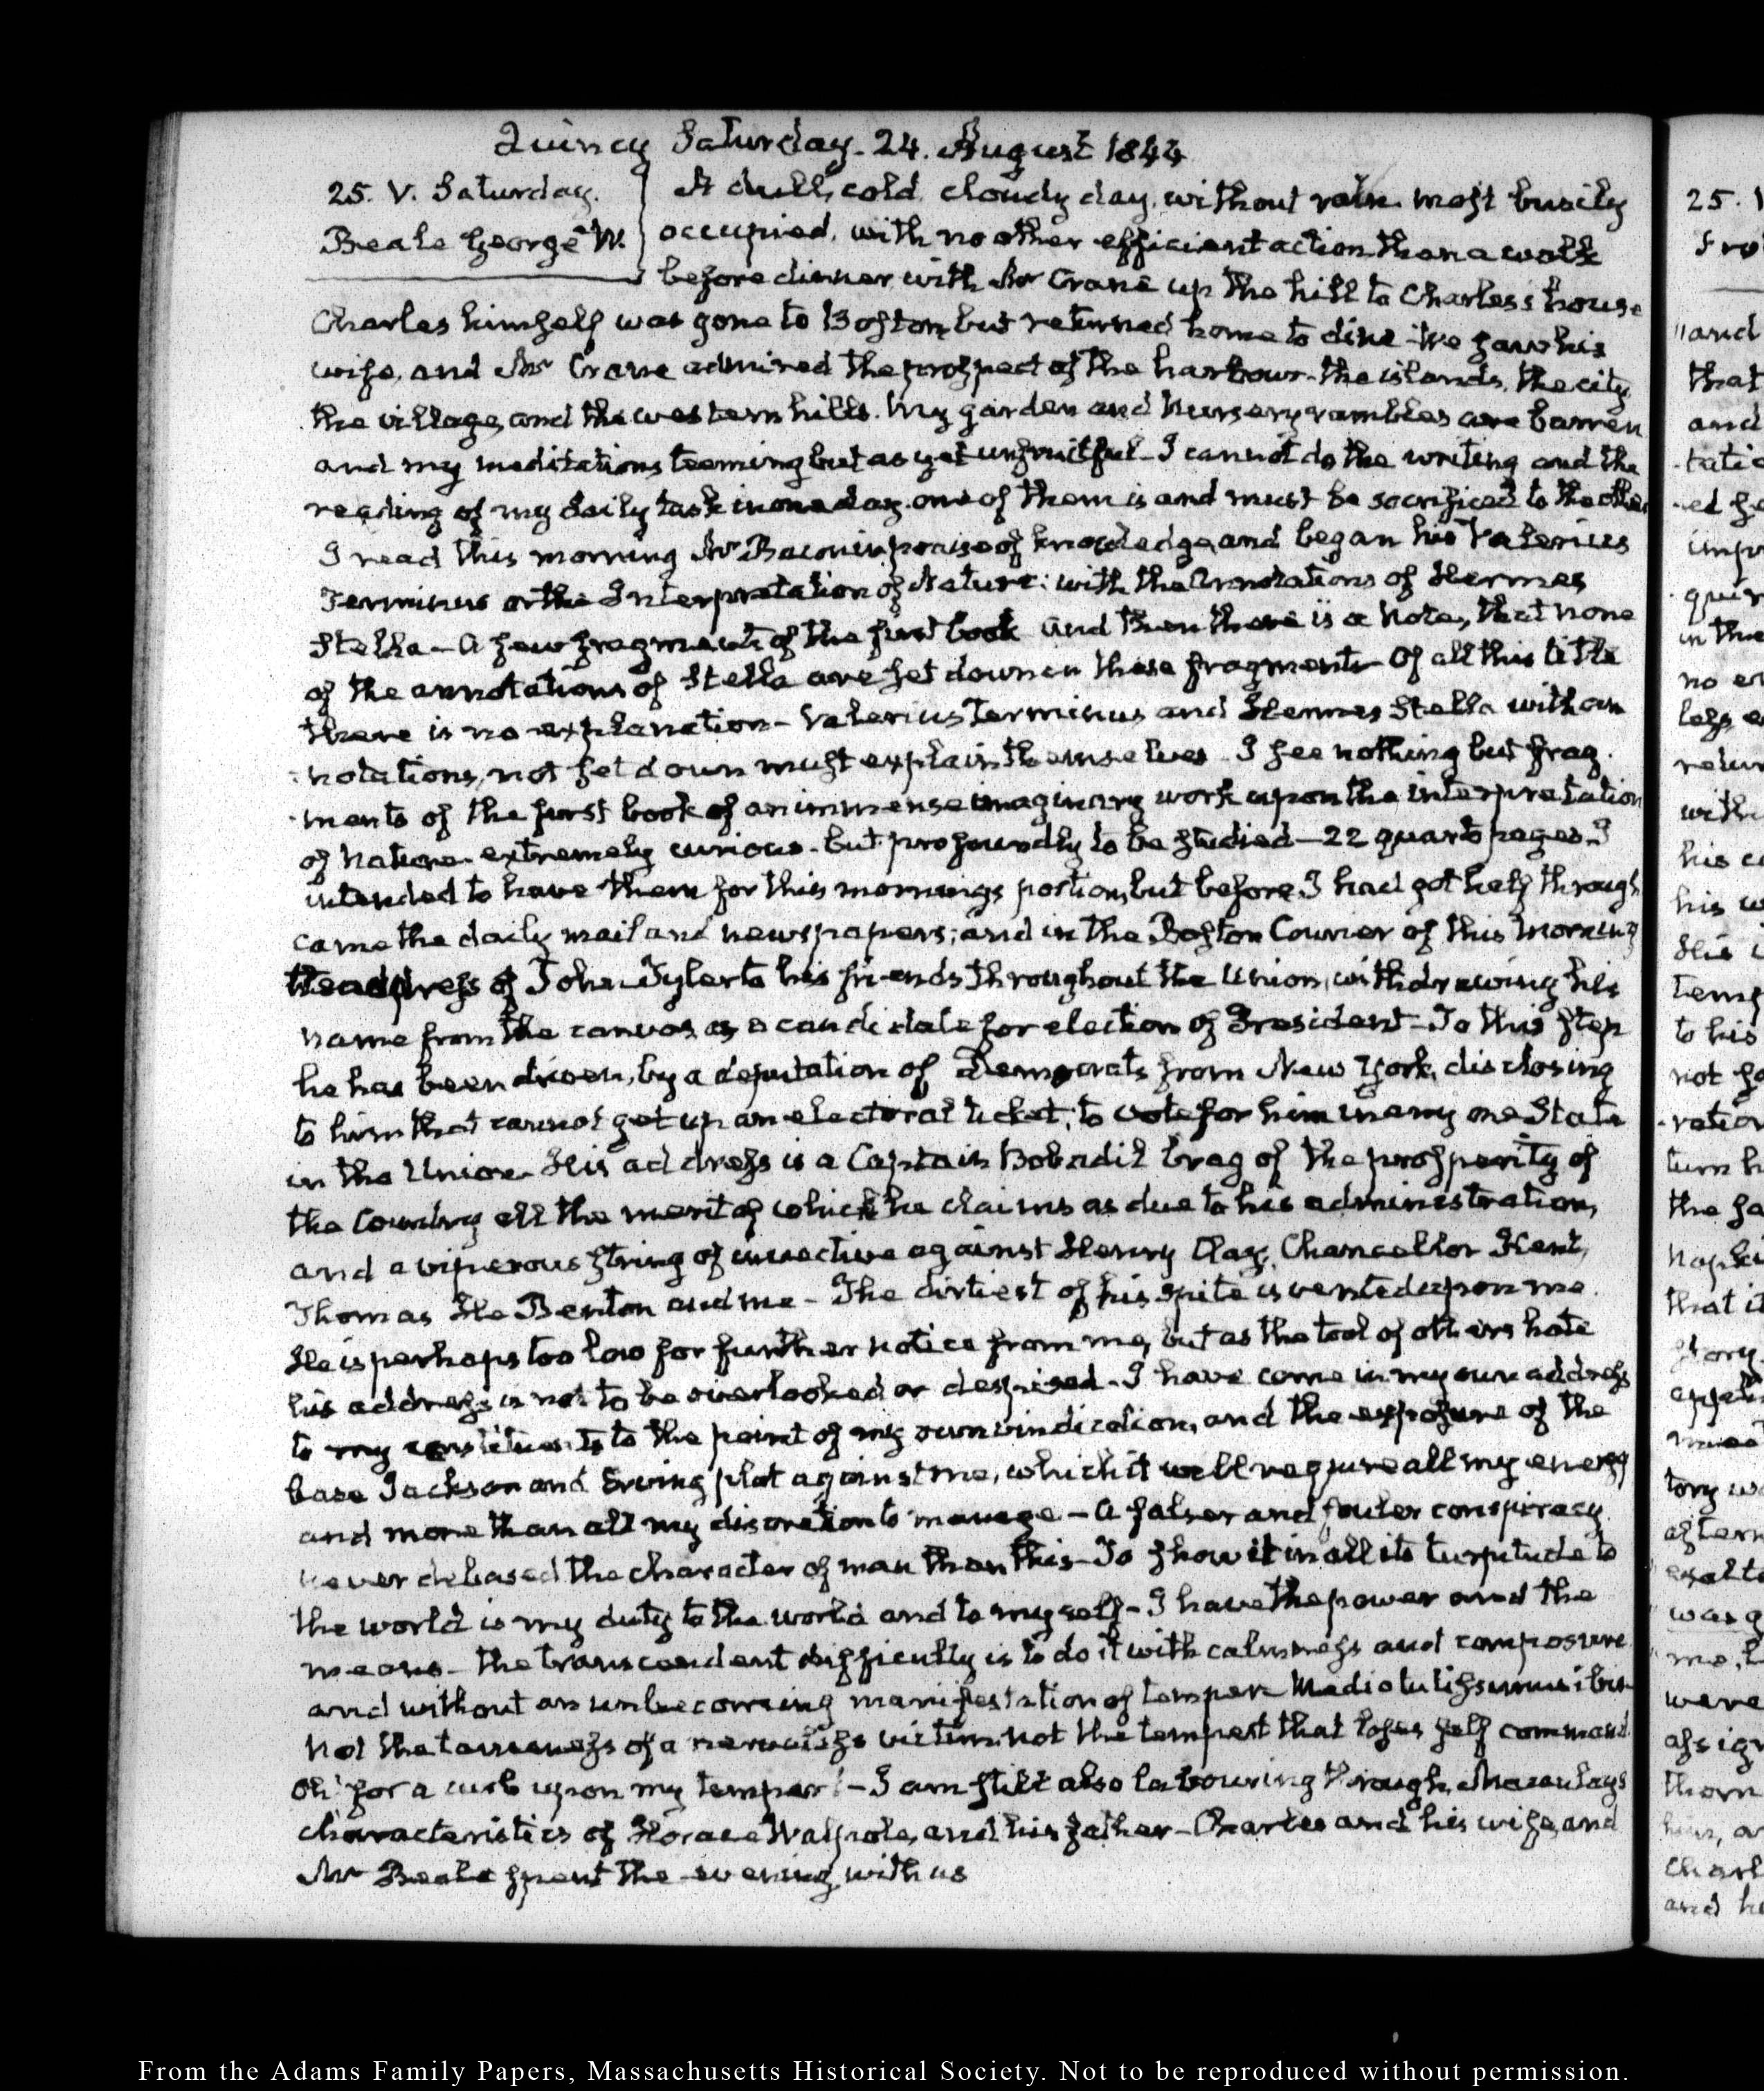 Quincy Saturday. 24. August 1844
25. V. Saturday.
Beale George W.
A dull, cold, cloudy day, without rain. most busily
occupied, with no other efficient action than a walk
before dinner with Mr Crane up the hill to Charles's house
Charles himself was gone to Boston, but returned home to dine. We saw his
wife, and Mr Crane admired the prospect of the harbour. the islands, the city,
the village, and the western hills. My garden and Nursery rambles are barren
and my meditations teeming but as yet unfruitful. I cannot do the writing and the
reading of my daily task in one day. one of them is and must be sacrificed to the other
I read this morning Mr Bacon in praise of knowledge, and began his Valerius
Terminus or the Interpretation of Nature: with the Annotations of Hermes
Stella — A few fragments of the first book and then there is a Note, that none
of the annotations of Stella are set down in these fragments. Of all this title
there is no explanation — Valerius Terminus and Hermes Stella with an
notations, not set down must explain themselves. I see nothing but frag
ments of the first book of an immense imaginary work upon the interpretation
of Nature. extremely curious. but profoundly to be studied — 22 quarto pages. I
intended to have them for this mornings portion, but before I had got half through
came the daily mail and newspapers; and in the Boston Courier of this Morning
the address of John Tyler to his friends throughout the Union, withdrawing his
name from the canvas as a candidate for election of President — To this step
he has been driven, by a deputation of Democrats from New York, disclosing
to him that cannot get up an electoral ticket, to vote for him in any one State
in the Union. His address is a Captain Bobadil brag of the prosperity of
the Country all the merit of which he claims as due to his administration,
and a viperous string of invective against Henry Clay, Chancellor Kent,
Thomas H. Benton and me — The dirtiest of his spite is vented upon me.
He is perhaps too low for further notice from me, but as the tool of others hate
his address is not to be overlooked or despised. I have come in my own address
to my constituents to the point of my own vindication, and the exposure of the
base Jackson and Erving plot against me, which it will require all my energy
and more than all my discretion to manage — A falser and fouler conspiracy
never debased the character of man than this — To show it in all its turpitude to
the world is my duty to the world and to myself — I have the power and the
means — the transcendent difficulty is to do it with calmness and composure
and without an unbecoming manifestation of temper. Medio tutissimus ibis
Not the tameness of a victim. not the tempest that loses self command.
Oh! for a curb upon my temper! — I am still also labouring through Macaulays
characteristics of Horace Walpole, and his father — Charles and his wife, and
Mr Beale spent the evening with us
25.
and
that
and
no
with
his
his
to his
not
the
that it
was
me,
were
thorn
and
From the Adams Family Papers, Massachusetts Historical Society. Not to be reproduced without permission.